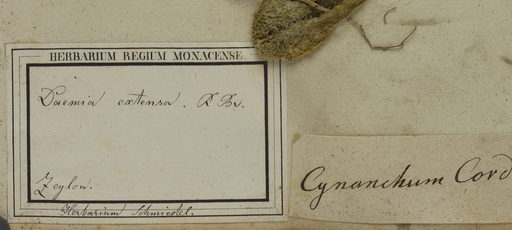 HERBARIUM REGIUM MONACENSE
Daemia extensa. R Br.
Zeylon.
Herbarium Schmiedel.
Cynanchum Cord